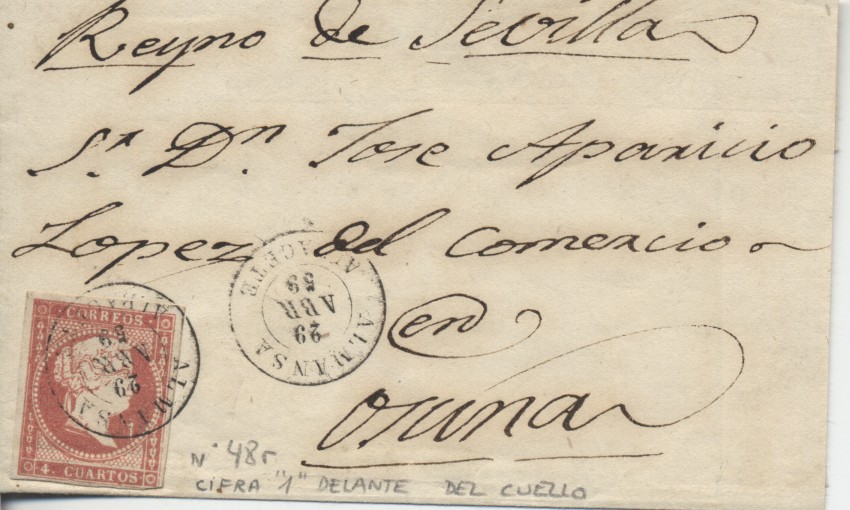 Reyno de Sevilla
Sr. Dn. Jose Aparicio
Lopez del Comercio
en
Osuna
ALMANSA
29
ABR
59
ALBACETE
CORREOS
29
ABR
59
4. CUARTOS
Nº 48r
CIFRA "1" DELANTE DEL CUELLO